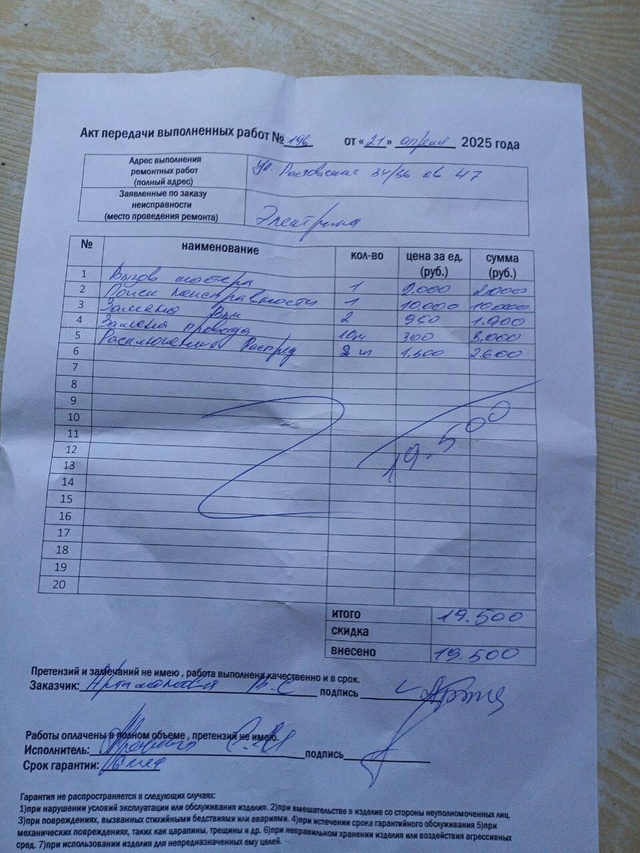 Акт передачи выполненных работ № 196 от «21» апреля 2025 года
Адрес выполнения
ремонтных работ
(полный адрес)
ул. Ростовская 34/36 кв 47
Заявленные по заказу
неисправности
(место проведения ремонта)
Электрика
№ наименование кол-во цена за ед. (руб.) сумма (руб.)
1 Вызов мастера 1 2.000 2.000
2 Поиск неисправности 1 10.000 10.000
3 Замена 2 950 1.900
4 Замена провода 10м 300 3.000
5 Расключение Распред 2 шт 2600
6
7
8
9
10
11
12
13
14
15
16
17
18
19
20
19.500
итого 19.500
скидка
внесено 19.500
Претензий и замечаний не имею, работа выполнена качественно и в срок.
Заказчик: подпись
Работы оплачены в полном объеме, претензий не имею.
Исполнитель: подпись
Срок гарантии:
Гарантия не распространяется в следующих случаях:
1)при нарушении условий эксплуатации или обслуживания изделия. 2)при вмешательстве в изделие со стороны неуполномоченных лиц.
3)при повреждениях, вызванных стихийными бедствиями или авариями. 4)при истечении срока гарантийного обслуживания 5)при
механических повреждениях, таких как царапины, трещины и др. 6)при неправильном хранении изделия или воздействия агрессивных
сред. 7)при использовании изделия для непредназначенных ему целей.